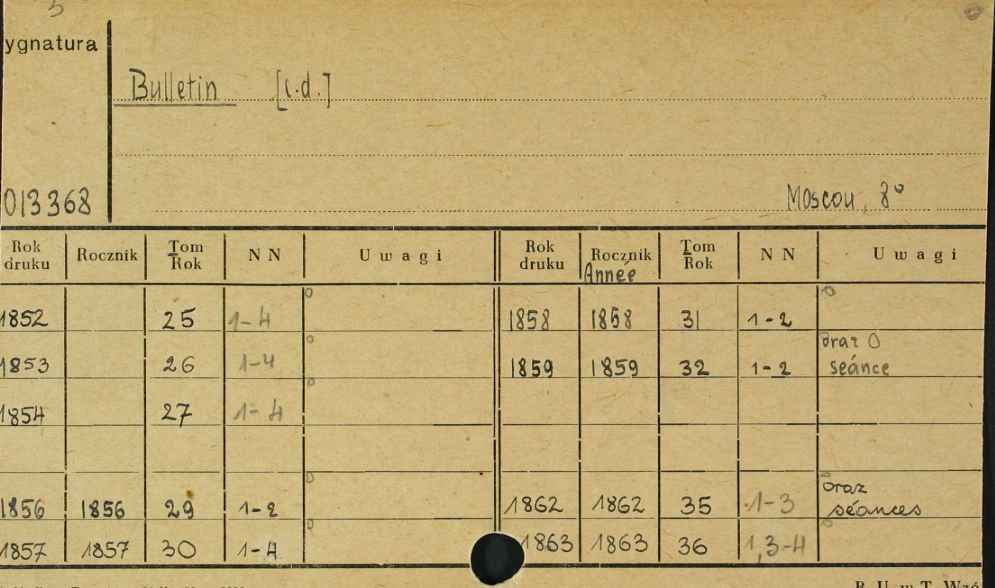 5
ygnatura
Bulletin [c.d.]
013368
Moscou, 8°
Rok druku Rocznik Tom Rok NN Uwagi Rok druku Rocznik Année Tom Rok NN Uwagi
1852 25 1-4 1858 1858 31 1-2
1853 26 1-4 1859 1859 32 1-2 oraz 0 séance
1854 27 1-4
1856 1856 29 1-2 1862 1862 35 1-3 oraz séances
1857 1857 30 1-4 1863 1863 36 1,3-4